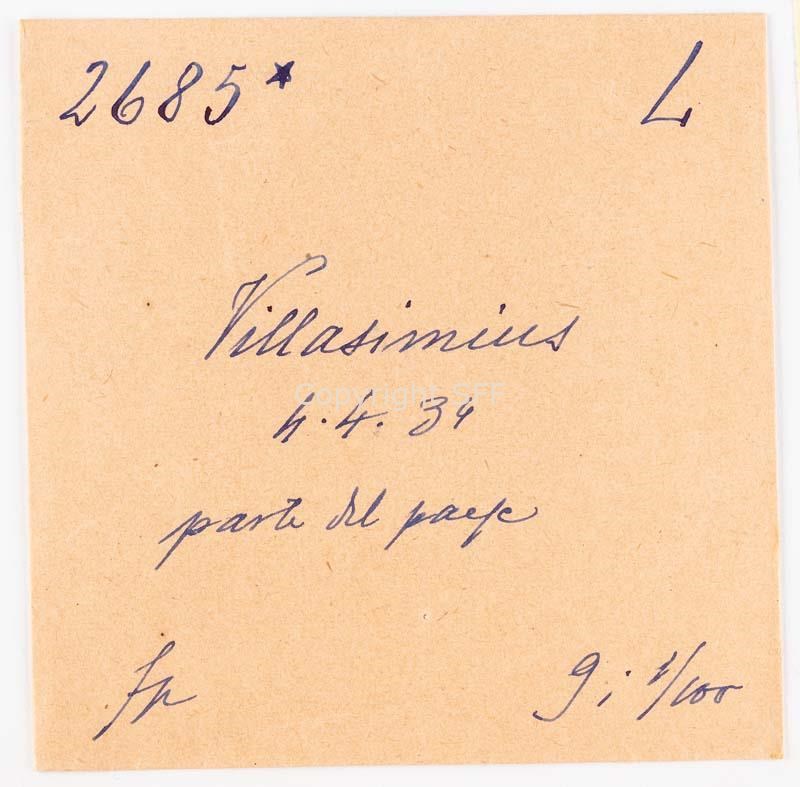 2685* L
Villasimius
Copyright SFF
4.4.34
parte del paese
fp 9; 1/100